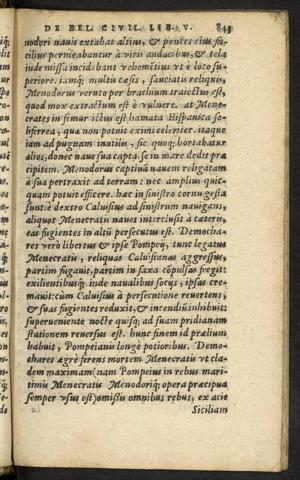 DE BEL. CIVIL. LIB. V. 843
nodori nauis extabat altius, & pontes eius fa-
cilius permeabantur à viris audacibus, & tela
inde missa incidebant vehemẽtius vt è loco su-
periore. iamq; multis cæsis, sauciatis reliquis,
Menodorus veruto per brachium traiectus est,
quod mox extractum est è vulnere. at Mene-
crates in femur ictus est hamata Hispanica so-
liferrea, quæ non potuit eximi celeriter. itaque
iam ad pugnam inutilis, sic quoq; hortabatur
alios, donec naue sua capta. se in mare dedit præ
cipitem. Menodorus captiuã nauem religatam
à sua pertraxit ad terram: nec amplius quic-
quam potuit efficere. hæc in sinistro cornu gesta
sunt. è dextro Caluisius ad sinistrum nauigans,
aliquot Menecratis naues interclusit à cæteris,
eas fugientes in altũ persecutus est. Democha-
res verò libertus & ipse Pompeij, tunc legatus
Menecratis, reliquas Caluisianas aggressus,
partim fugauit, partim in saxa cõpulsas fregit:
exilientibusq; inde naualibus socijs, ipsas cre-
mauit: cùm Caluisius à persecutione reuertens,
& suas fugientes reduxit, & incendiũ inhibuit:
superueniente nocte quisq; ad suam pridianam
stationem reuersus est. hunc finem id prælium
habuit, Pompeianis longè potioribus. Demo-
chares ægrè ferens mortem Menecratis vt cla-
dem maximam (nam Pompeius in rebus mari-
timis Menecratis Menodoriq; opera præcipua
semper vsus est) omissis omnibus rebus, ex acie
Siciliam